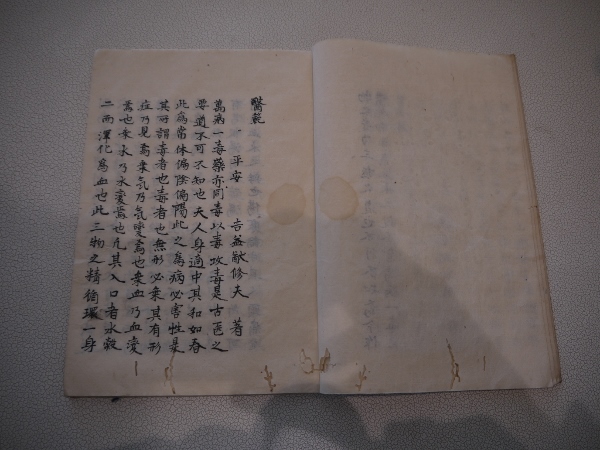 醫範
一 平安 吉益猷修夫 著
萬病一毒藥亦同毒以毒攻毒是古医之
要道不可不知也夫人身適中其和如春
此為常体偏陰偏陽此之為病必害性是
其所謂毒者也毒者也無形必乗其有形
症乃見焉乗気乃気變焉也乗血乃血変
焉也乗水乃水変焉也凡其入口者水穀
二而渾化為血也此三物之精循環一身